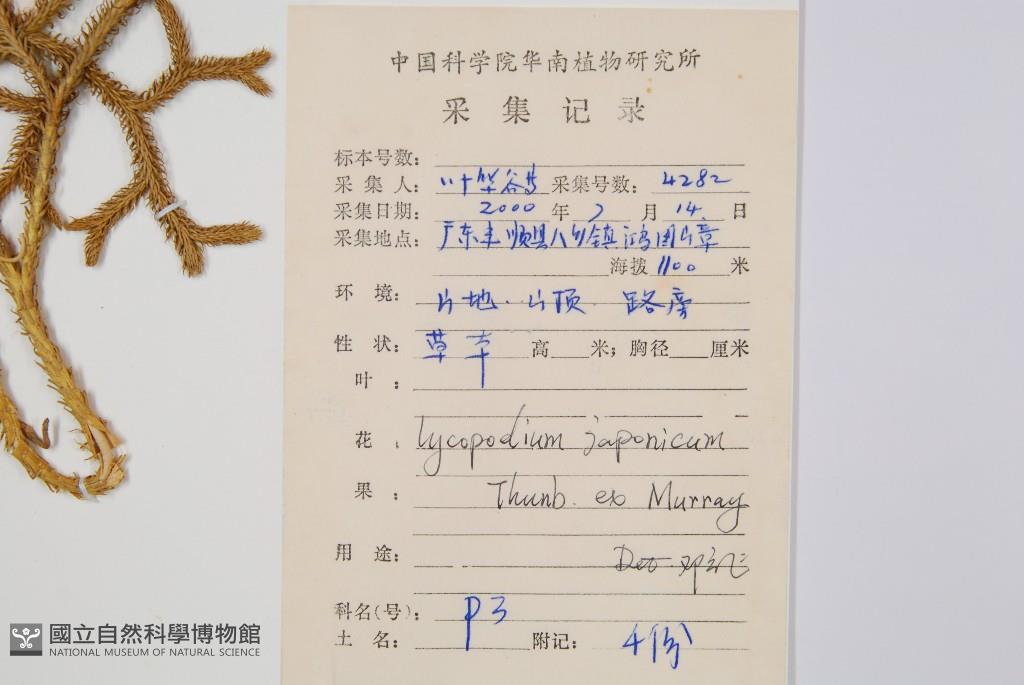 中国科学院华南植物研究所
采集记录
标本号数:
采集人: 叶华谷 采集号数: 4282
采集日期: 2000 年 7 月 14 日
采集地点: 广东丰顺县八乡镇鸿图山
海拨 1100 米
环 境: 山地. 山顶. 路旁
性 状: 草本 高 米; 胸径 厘米
叶 :
花 : Lycopodium japonicum
果 : Thunb. ex Murray
用 途: Det.
科名(号): P3
土 名: 附记: 4份
國立自然科學博物館
NATIONAL MUSEUM OF NATURAL SCIENCE